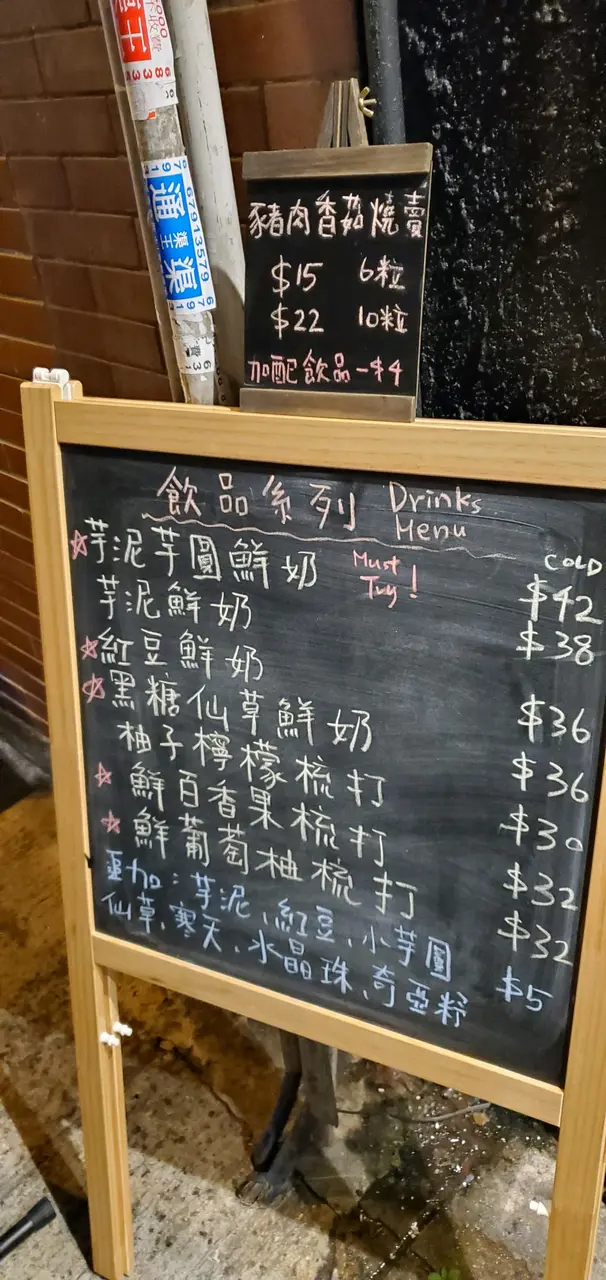 通渠
渠王
67913579
豬肉香菇燒賣
$15 6粒
$22 10粒
加配飲品-$4
飲品系列 Drinks Menu
COLD
☆芋泥芋圓鮮奶 Must Try! $42
芋泥鮮奶 $38
☆紅豆鮮奶 $36
☆黑糖仙草鮮奶 $36
柚子檸檬梳打 $30
☆鮮百香果梳打 $32
☆鮮葡萄柚梳打 $32
加:芋泥、紅豆、小芋圓
仙草、寒天、水晶珠、奇亞籽 $5